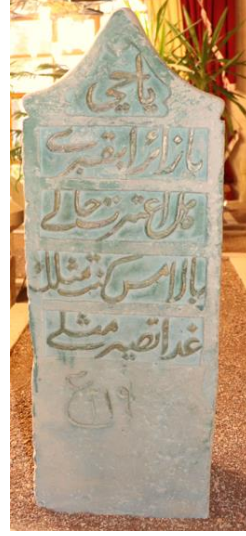 يا حي
يا زائرا بقبري
كل اعتبرت حالي
بالامس كنت مثلك
غدا تصير مثلي